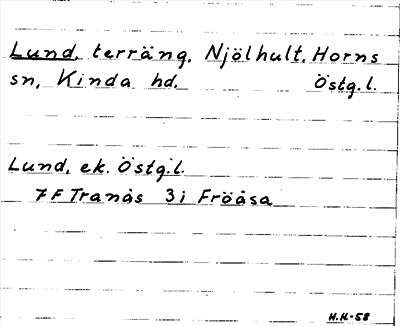 Lund, terräng, Njölhult, Horns
sn, Kinda hd. Östg.l.
Lund, ek. Östg.l.
7 F Tranås 3 i Fröåsa
H.H-58